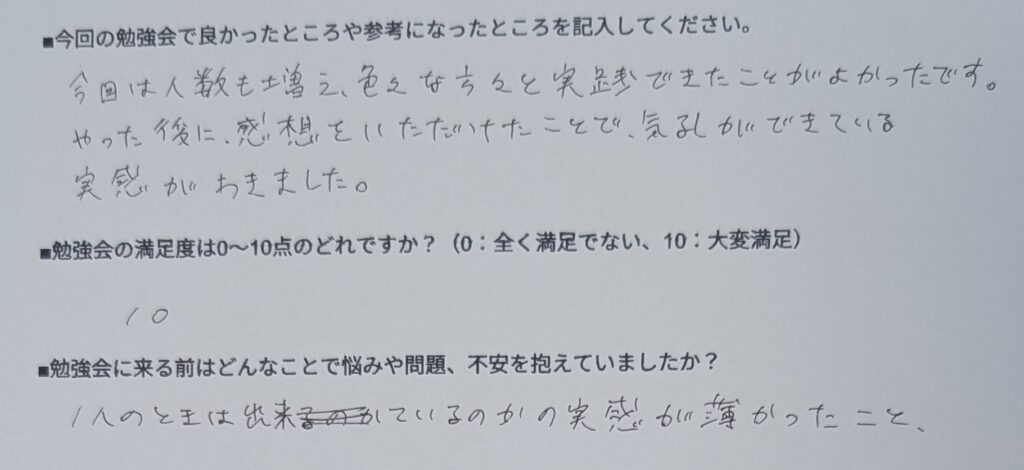 ■今回の勉強会で良かったところや参考になったところを記入してください。
今回は人数も増え、色々な方々と実践できたことがよかったです。
やった後に、感想をいただけたことで、気功ができている
実感がわきました。
■勉強会の満足度は0〜10点のどれですか？（0：全く満足でない、10：大変満足）
10
■勉強会に来る前はどんなことで悩みや問題、不安を抱えていましたか？
1人のときは出来ているのかの実感が薄かったこと、